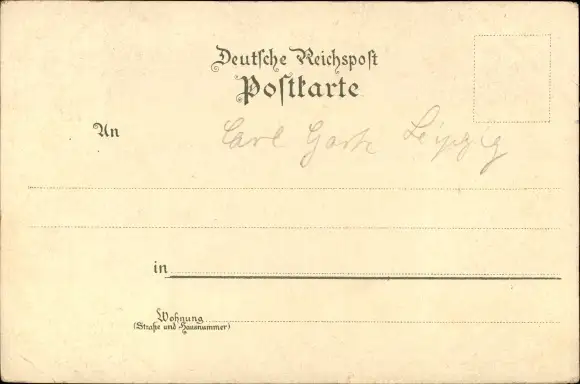 Deutsche Reichspost
Postkarte
An Carl Garte Leipzig
in
Wohnung
(Straße und Hausnummer)